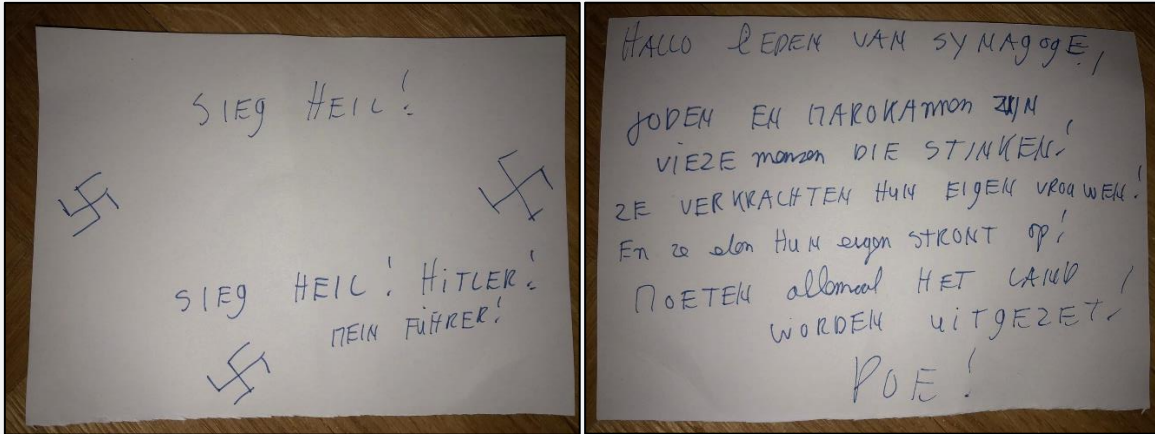 SIEG HEIL!
SIEG HEIL! HITLER!
MEIN FÜHRER!
HALLO LEDEN VAN SYNAGOGE,
JODEN EN MAROKAnnen ZIJN
VIEZE mensen DIE STINKEN!
ZE VERKRACHTEN HUN EIGEN VROUWEN!
En ze eten HUN eigen STRONT op!
MOETEN allemaal HET LAND
WORDEN UITGEZET!
POE!